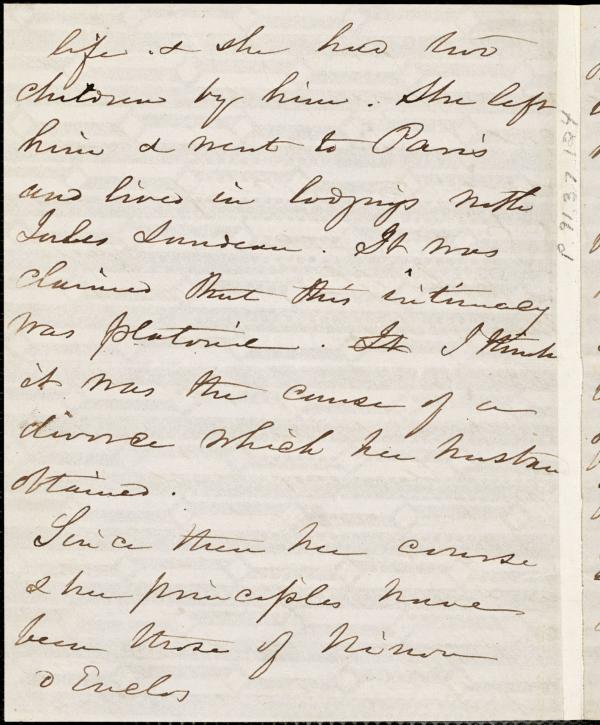 life. & she had two
children by him. She left
him & went to Paris
and lived in lodgings with
Jules Sandeau. It was
claimed that this intimacy
was platonic. It I think
it was the cause of a
divorce which her husban
obtained.
Since then her course
& her principles have
been those of Ninon
d Enclos
p 913 7 184